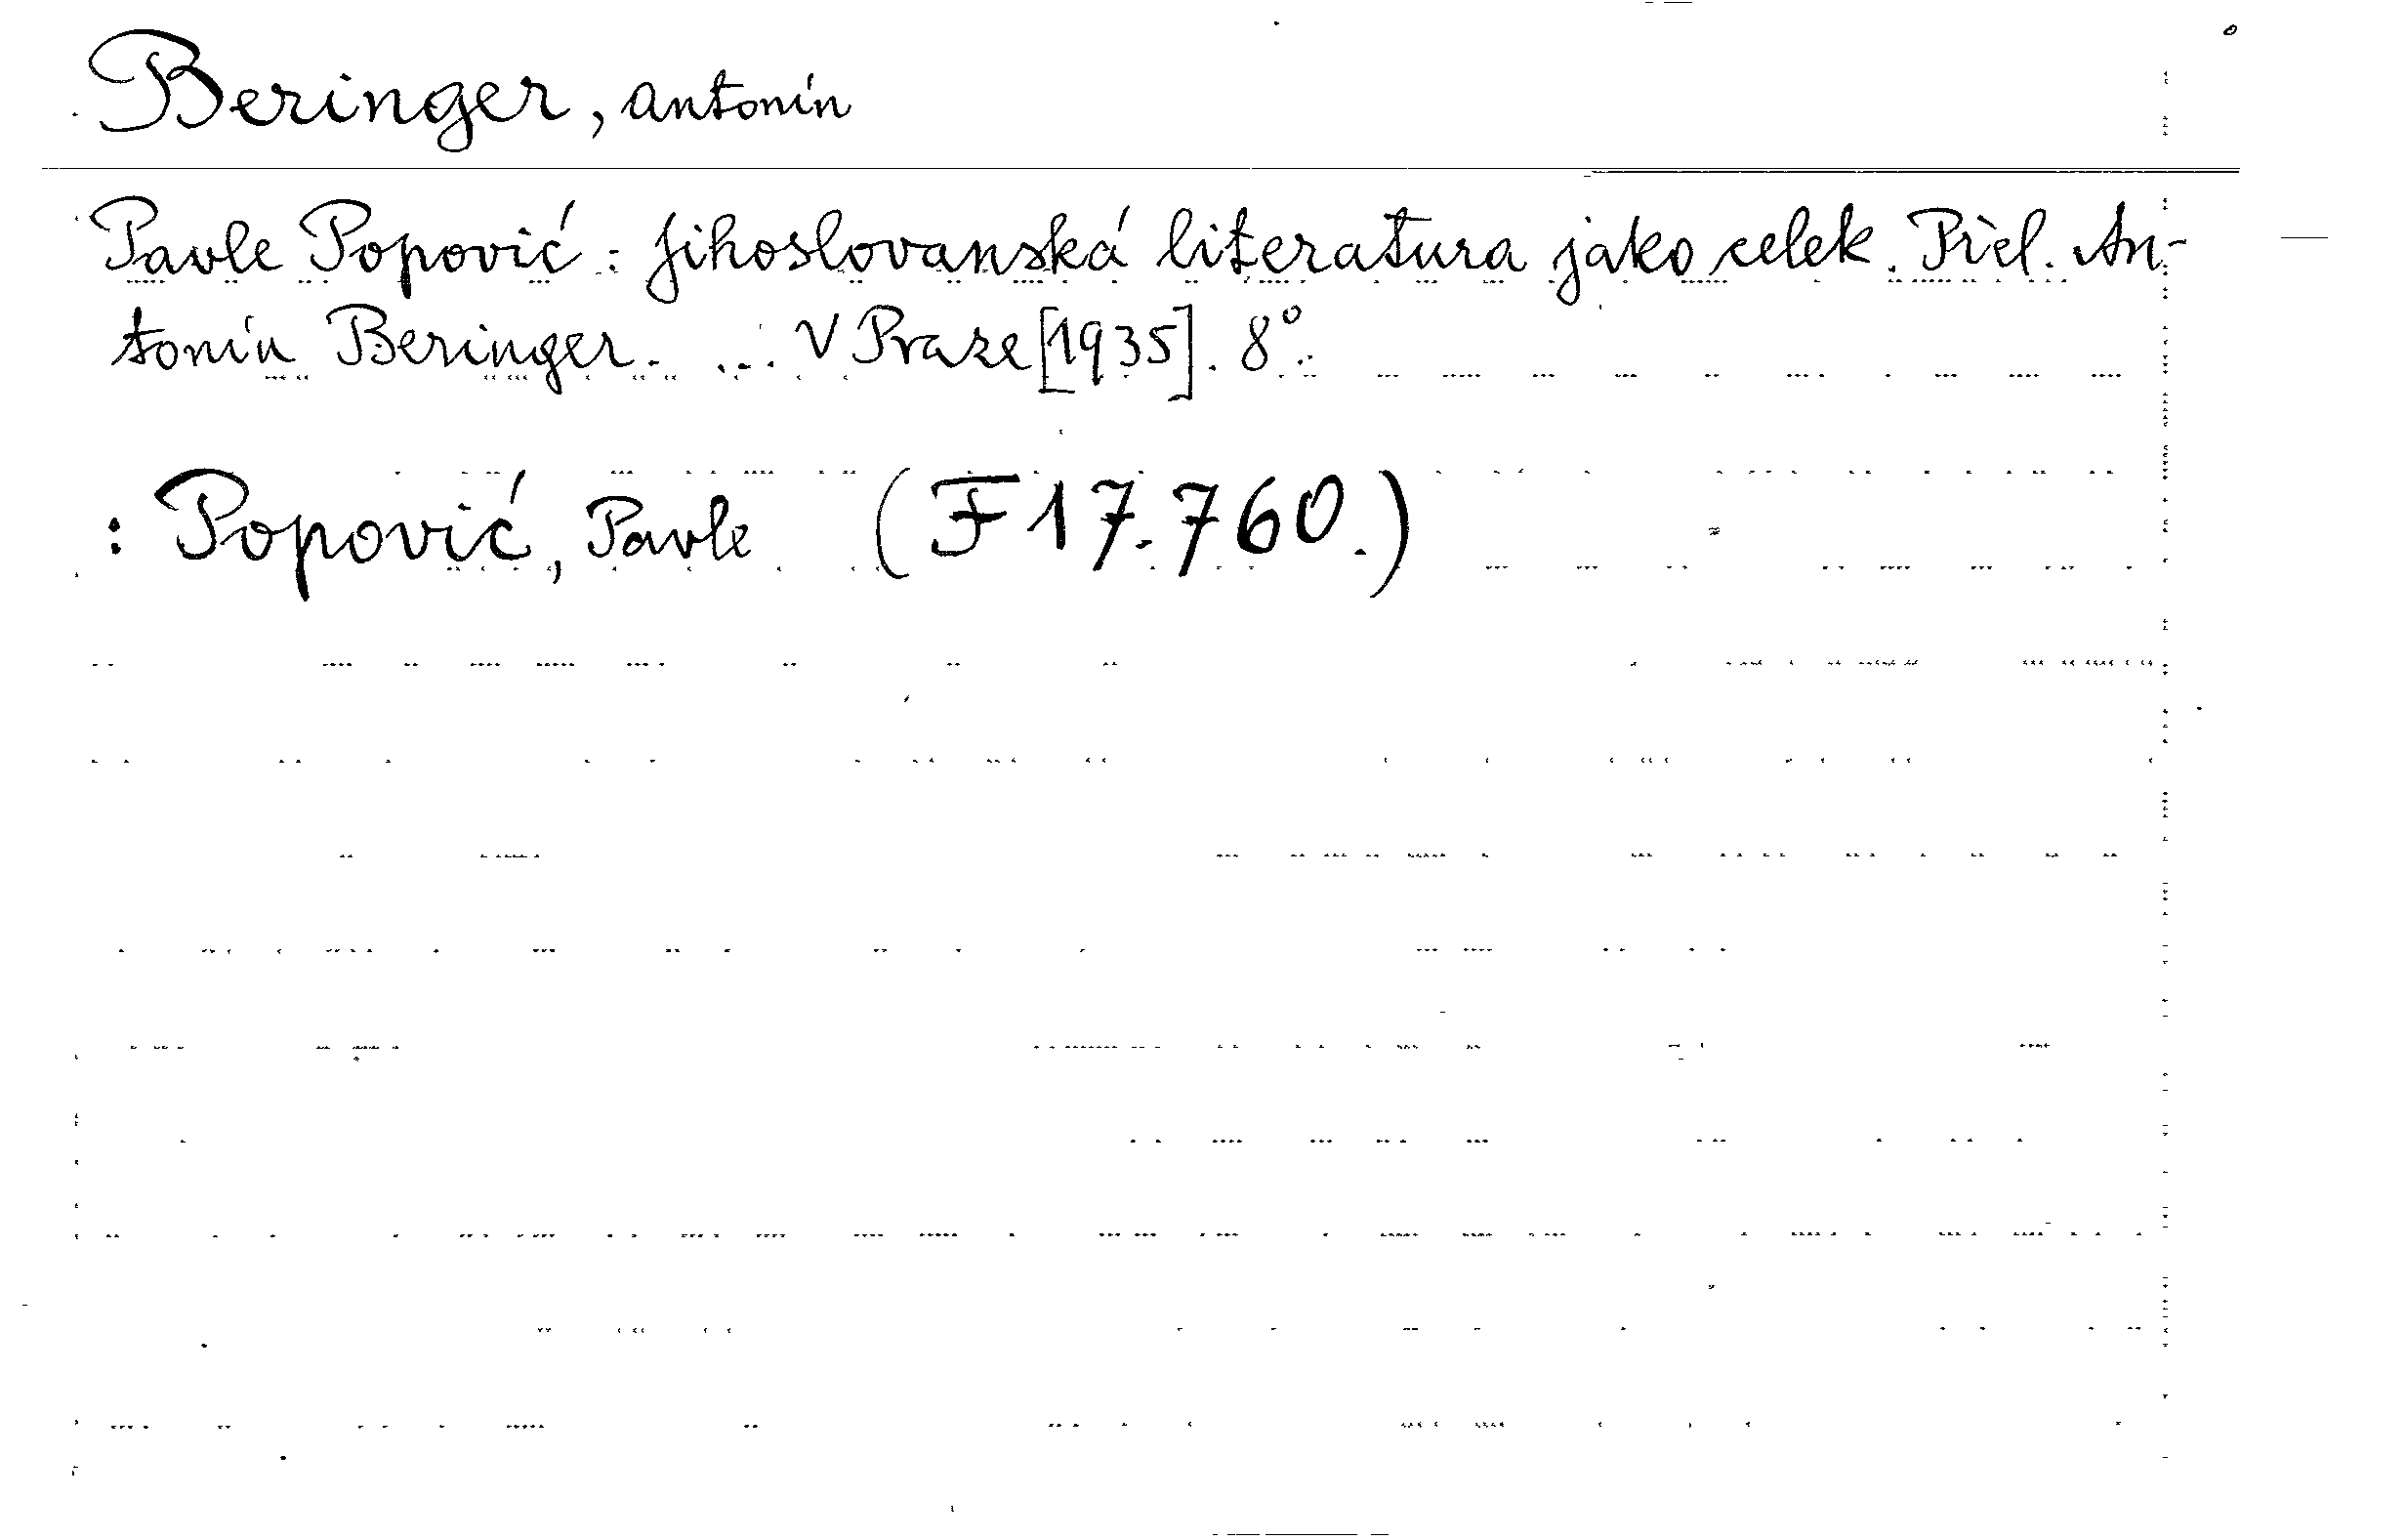 Beringer, Antonín
Pavle Popović: Jihoslovanská literatura jako celek. Přel. An-
tonín Beringer. ... V Praze [1935]. 8°.
: Popović, Pavle (F 17.760.)